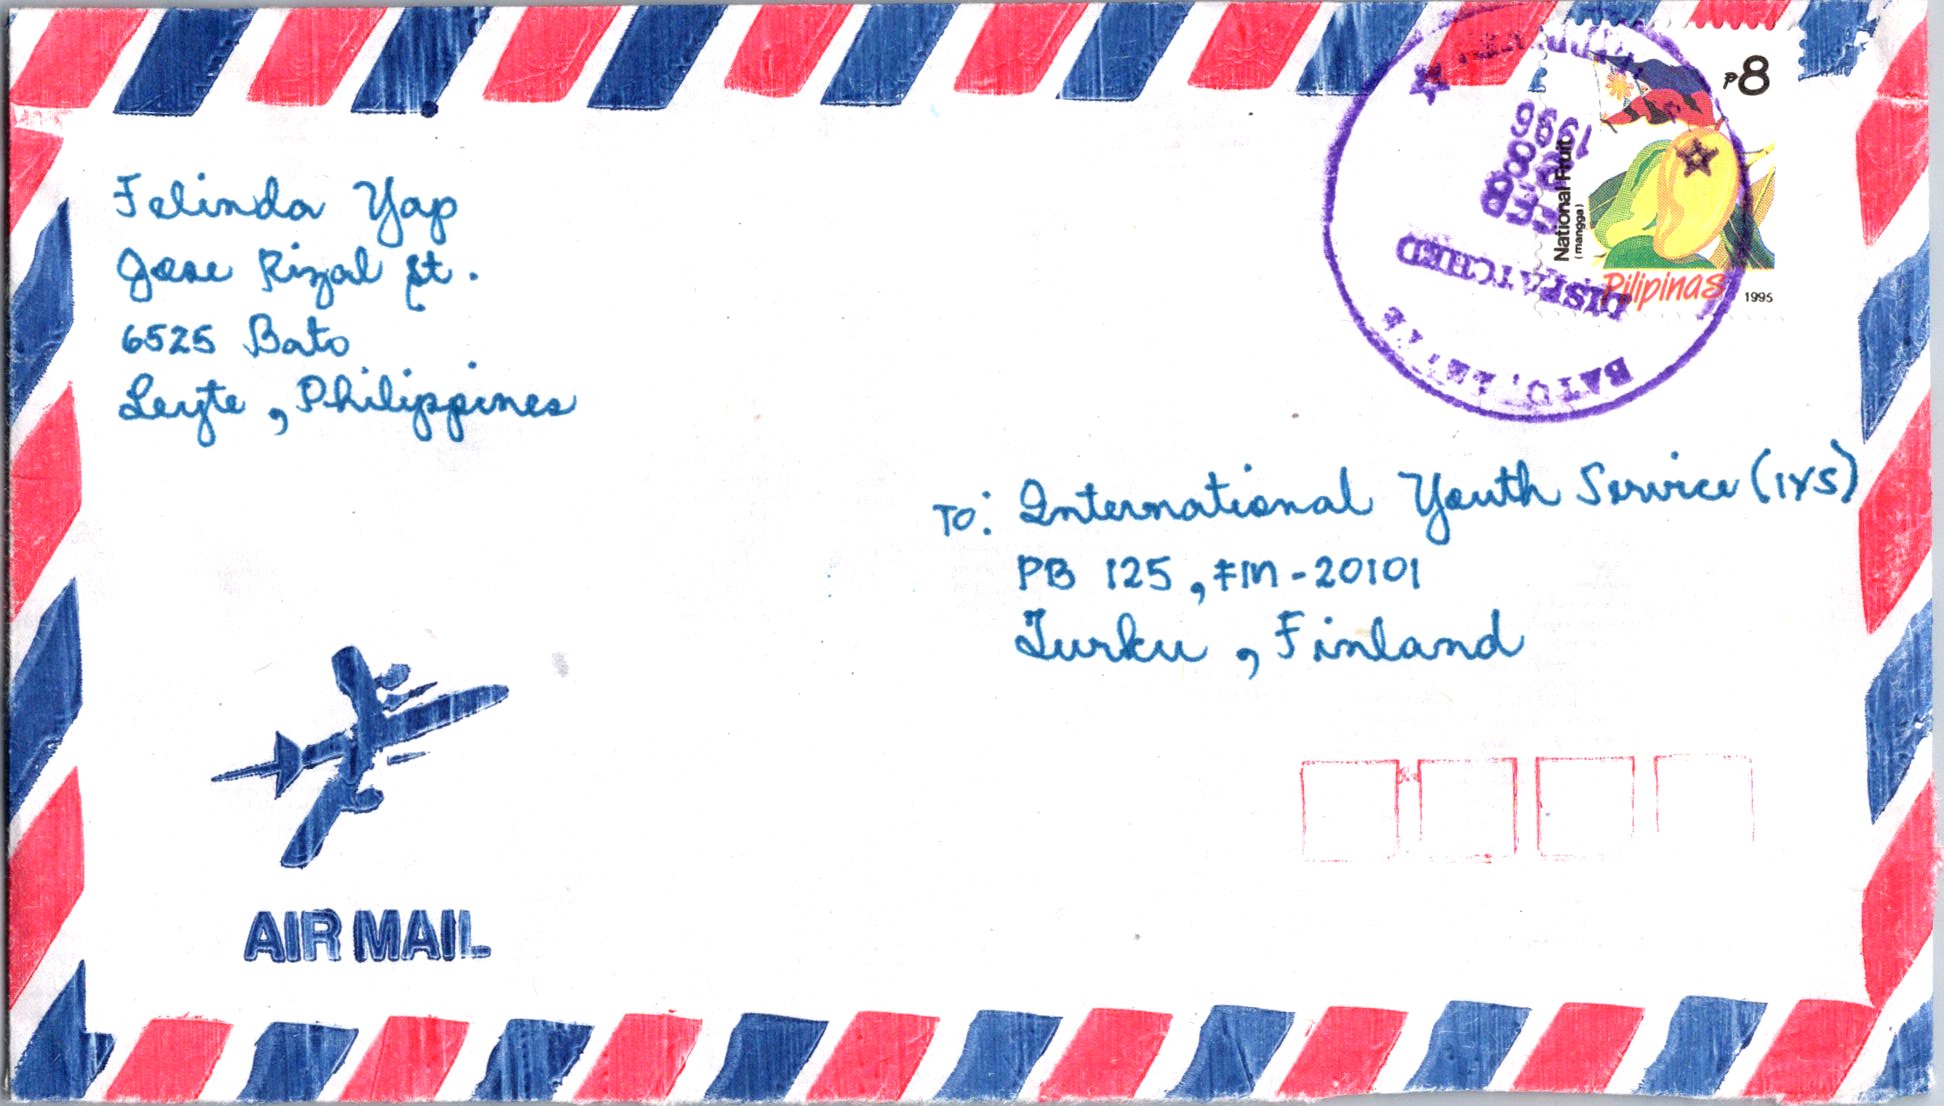 Felinda Yap
Jose Rizal St.
6525 Bato
Leyte, Philippines
₱8
National Fruit
(manga)
Pilipinas
1995
DISPATCHED
FEB
1996
BATO,
To: International Youth Service (IYS)
PB 125, FIN-20101
Turku, Finland
AIR MAIL